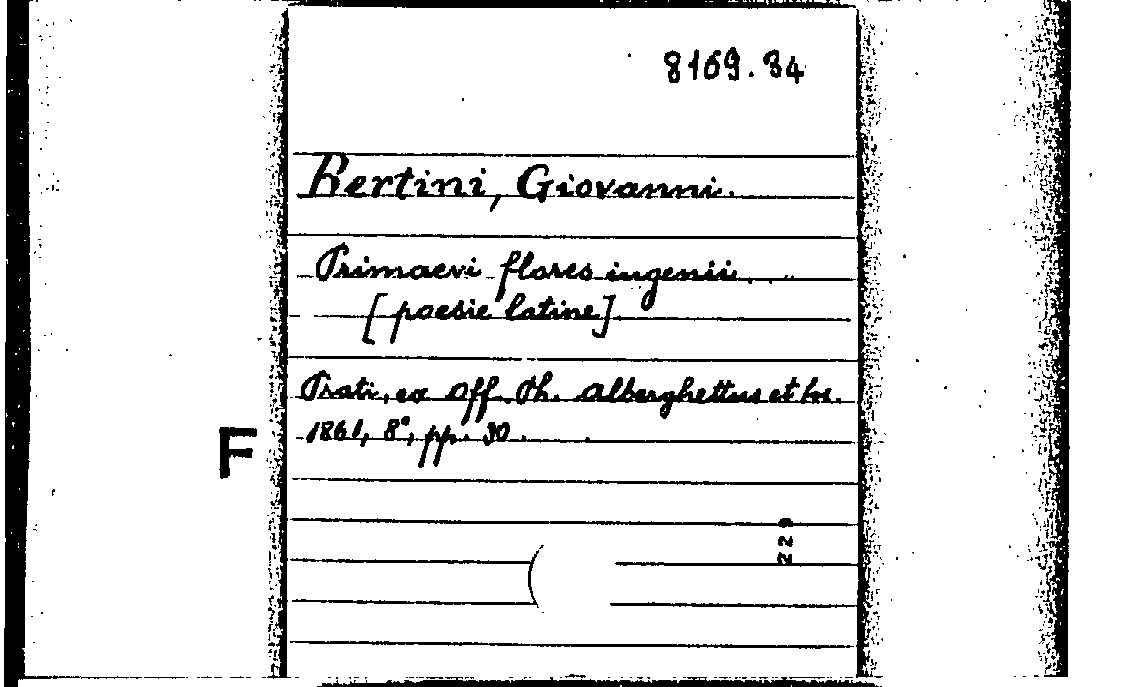 8169.84
Bertini, Giovanni.
Primaevi flores ingenii . . . .
[poesie latine].
Prati, ex Off. Ph. Alberghettus et
1861, 8°, pp. 30.
F
229